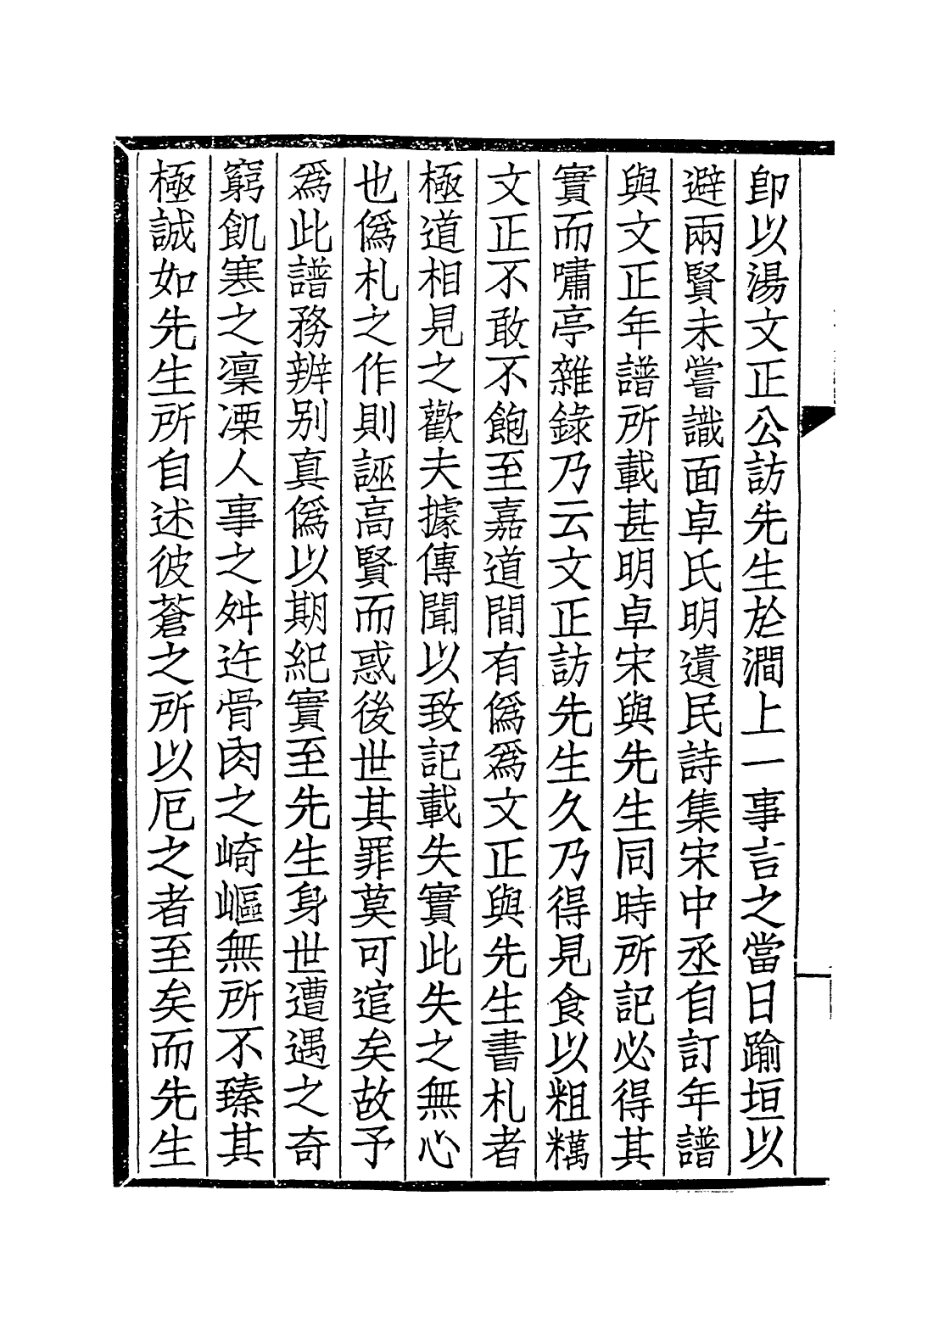 卽以湯文正公訪先生於澗上一事言之當日踰垣以
避兩賢未嘗識面卓氏明遺民詩集宋中丞自訂年譜
與文正年譜所載甚明卓宋與先生同時所記必得其
實而嘯亭雜錄乃云文正訪先生久乃得見食以粗糲
文正不敢不飽至嘉道間有僞爲文正與先生書札者
極道相見之歡夫據傳聞以致記載失實此失之無心
也僞札之作則誣高賢而惑後世其罪莫可逭矣故予
爲此譜務辨别真僞以期紀實至先生身世遭遇之奇
窮飢寒之凜凓人事之舛迕骨肉之崎嶇無所不臻其
極誠如先生所自述彼蒼之所以厄之者至矣而先生